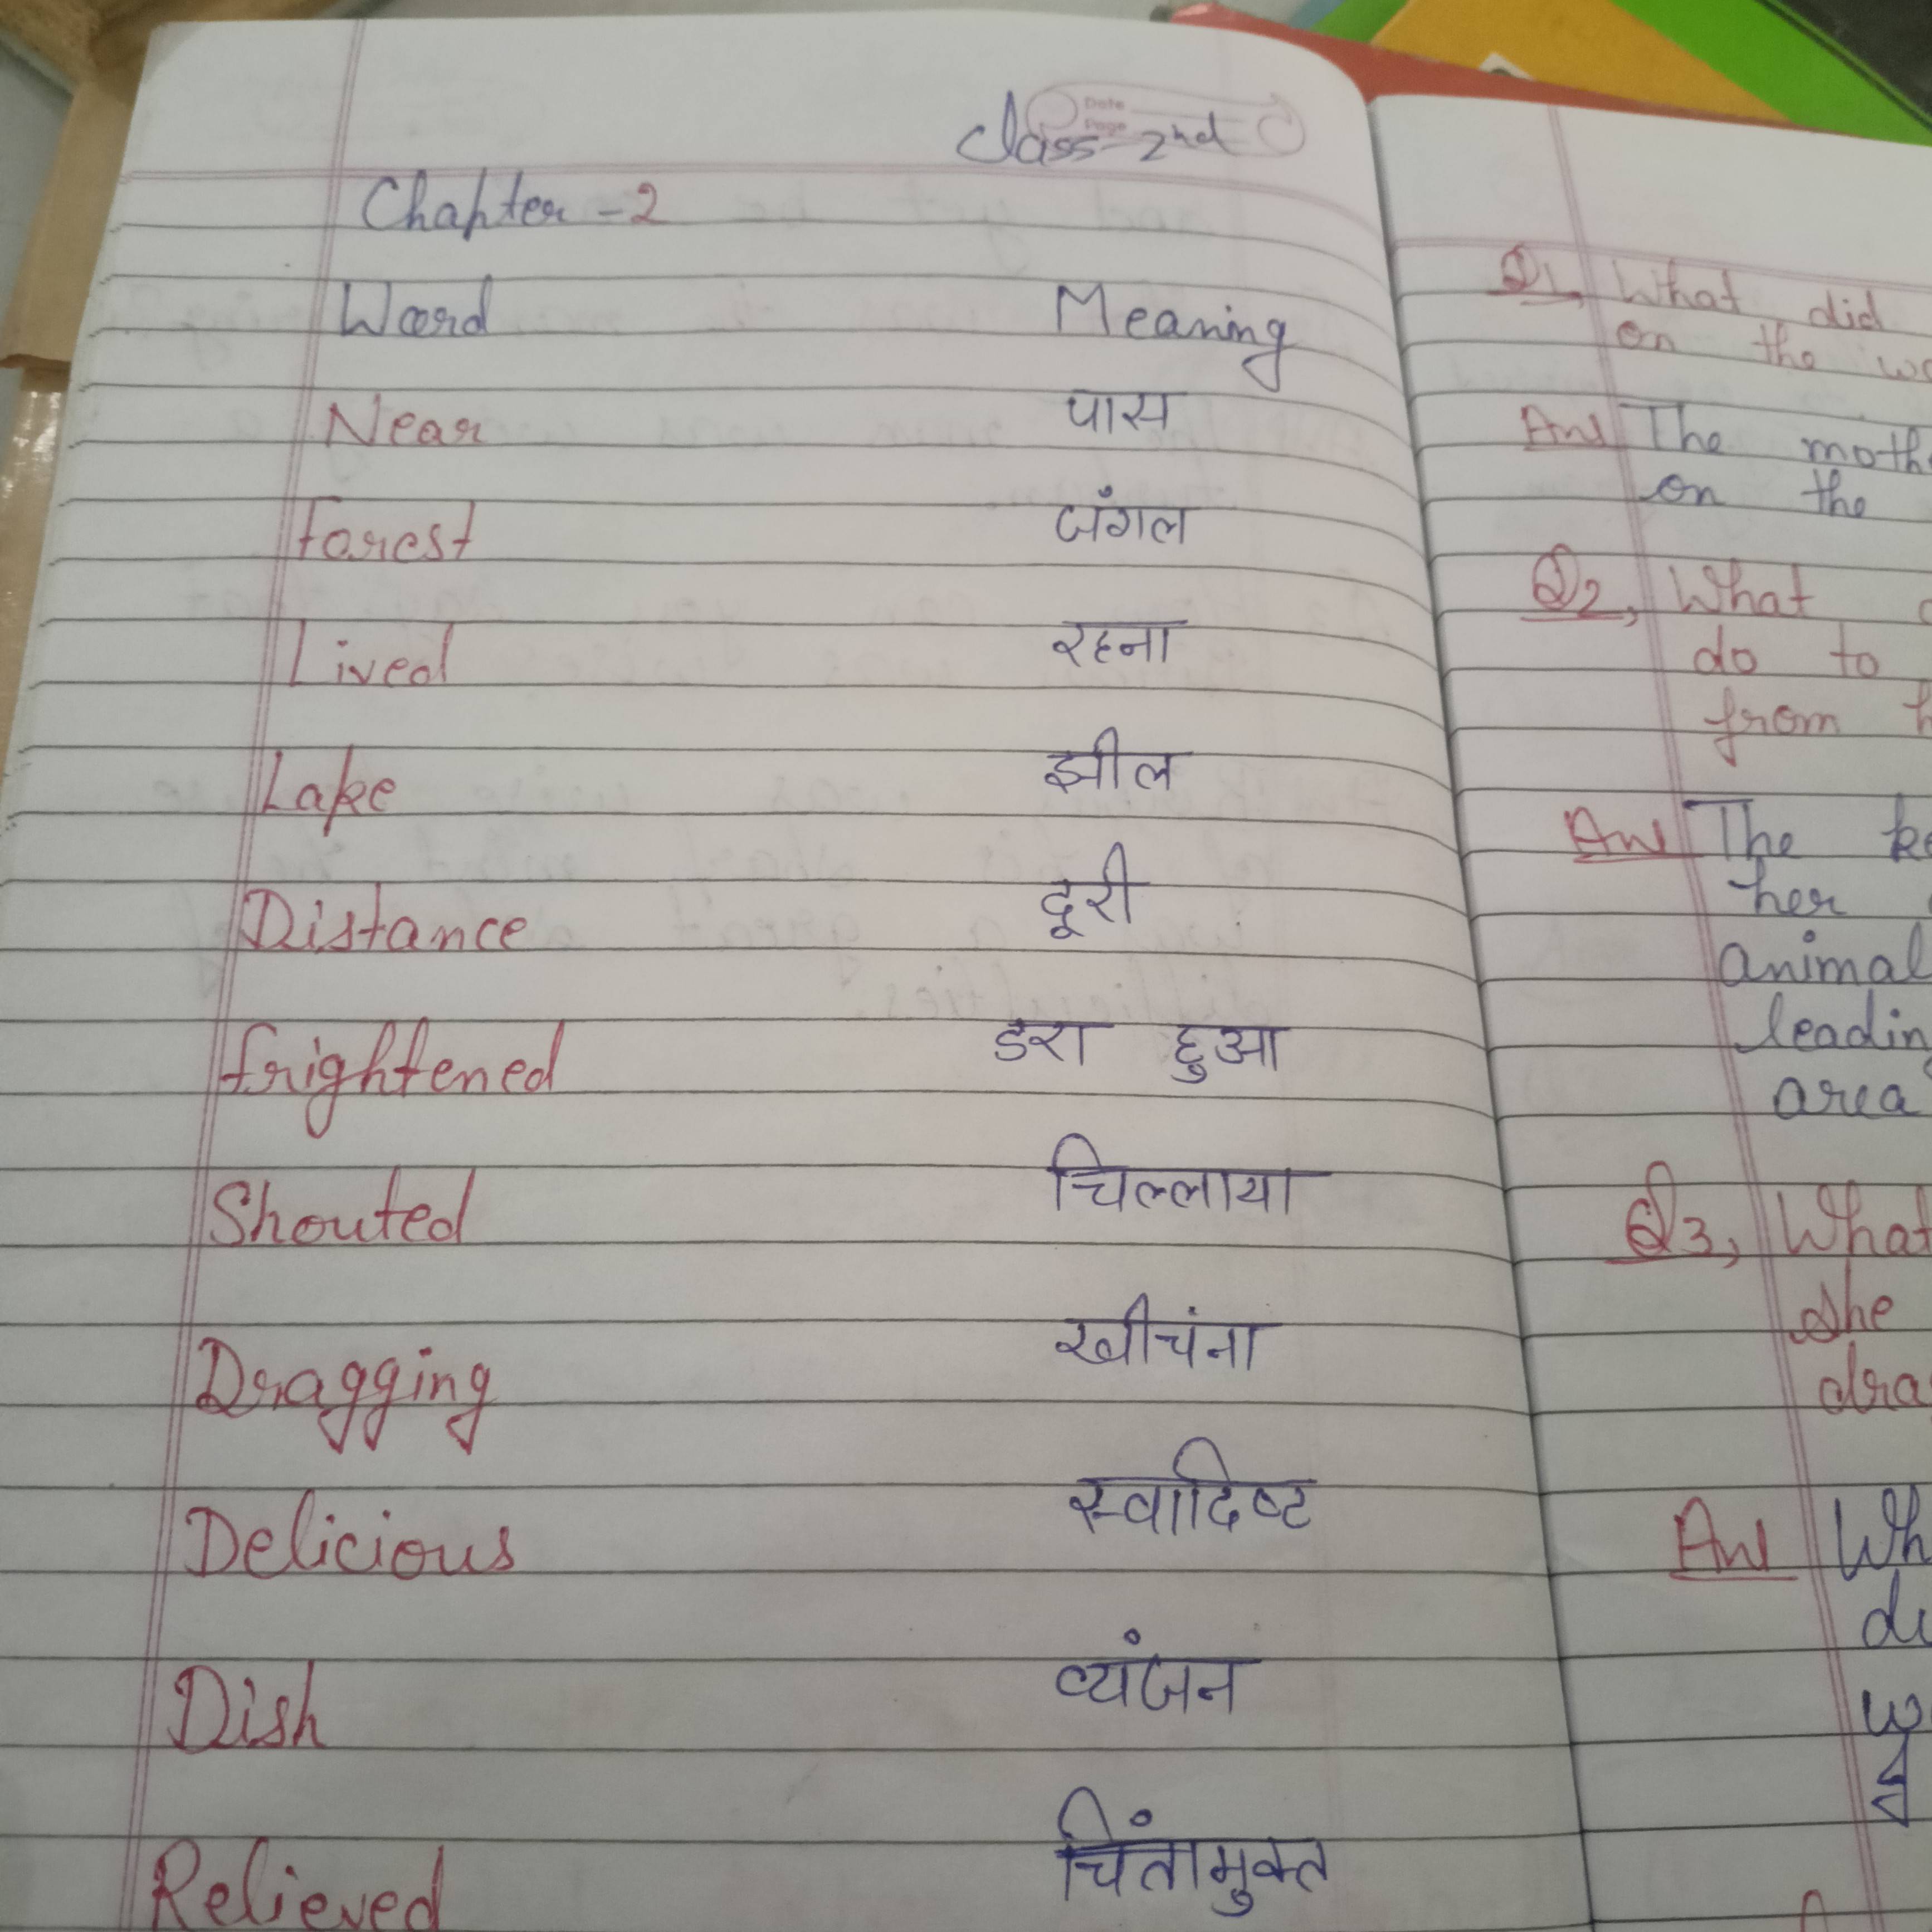 Date
Page
Class-2nd
Chapter-2
Word Meaning
Near पास
Forest जंगल
Lived रहना
Lake झील
Distance दूरी
frightened डरा हुआ
Shouted चिल्लाया
Dragging खीचंना
Delicious स्वादिष्ट
Dish व्यंजन
Relieved चिंतामुक्त
Q1, What did
on the
Ans The
on the
Q2, What
do to
from
Ans The
her
animal
leadin
area
Q3, What
She
Ans